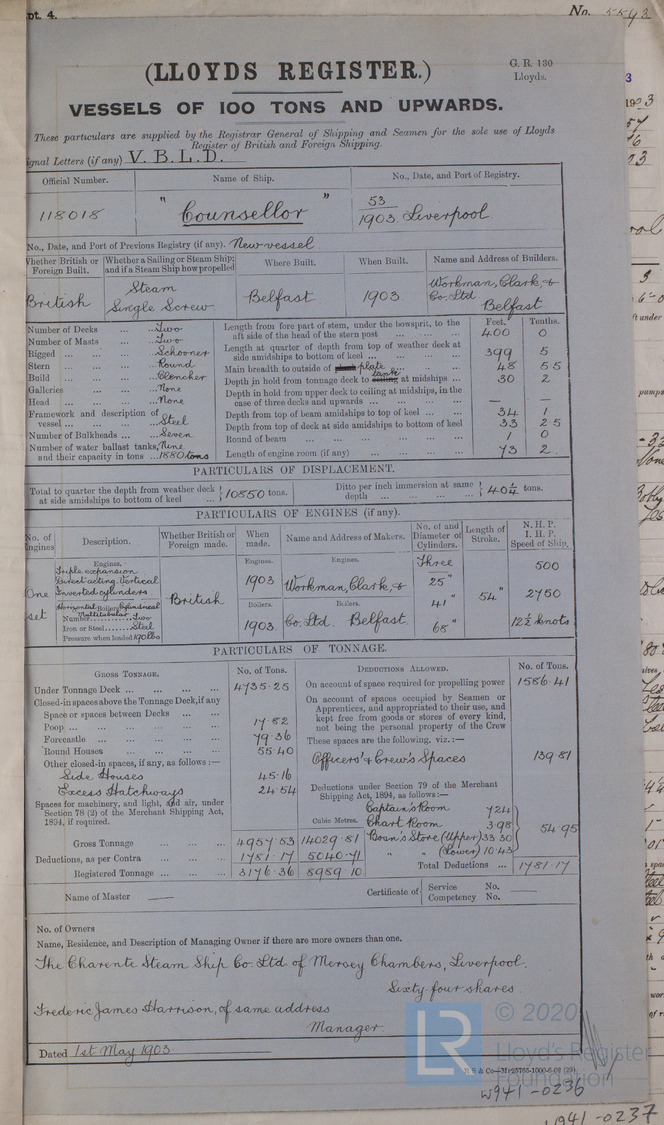 pt. 4.
No. 5593
G. R. 130
Lloyds.
(LLOYDS REGISTER.)
VESSELS OF 100 TONS AND UPWARDS.
These particulars are supplied by the Registrar General of Shipping and Seamen for the sole use of Lloyds
Register of British and Foreign Shipping.
ignal Letters (if any) V. B. L. D.
Official Number. Name of Ship. No., Date, and Port of Registry.
118018 "Counsellor" 53/1903. Liverpool
No., Date, and Port of Previous Registry (if any). New vessel
Whether British or Foreign Built. Whether a Sailing or Steam Ship; and if a Steam Ship how propelled Where Built. When Built. Name and Address of Builders.
British Steam Single Screw Belfast 1903. Workman, Clark, & Co. Ltd Belfast
Number of Decks ... ... Two
Number of Masts ... ... Two
Rigged ... ... ... Schooner
Stern ... ... ... Round
Build ... ... ... Clencher
Galleries ... ... ... None
Head ... ... ... None
Framework and description of vessel ... ... ... Steel
Number of Bulkheads ... ... Seven
Number of water ballast tanks, and their capacity in tons ... Nine 1880 tons
Feet. Tenths.
Length from fore part of stem, under the bowsprit, to the aft side of the head of the stern post ... ... ... 400 0
Length at quarter of depth from top of weather deck at side amidships to bottom of keel ... ... ... ... 399 5
Main breadth to outside of plank plate ... ... ... 48 55
Depth in hold from tonnage deck to ceiling tank at midships ... 30 2
Depth in hold from upper deck to ceiling at midships, in the case of three decks and upwards ... ... ... ... — —
Depth from top of beam amidships to top of keel ... ... 34 1
Depth from top of deck at side amidships to bottom of keel 33 25
Round of beam ... ... ... ... ... ... 1 0
Length of engine room (if any) ... ... ... ... 73 2
PARTICULARS OF DISPLACEMENT.
Total to quarter the depth from weather deck at side amidships to bottom of keel ... 10850 tons. Ditto per inch immersion at same depth ... ... ... ... 40¼ tons.
PARTICULARS OF ENGINES (if any).
No. of Engines. Description. Whether British or Foreign made. When made. Name and Address of Makers. No. of and Diameter of Cylinders. Length of Stroke. N. H. P. I. H. P. Speed of Ship.
One set
Engines.
Triple expansion
Direct acting Vertical
Inverted cylinders
Horizontal Boilers Cylindrical
Multitubular
Number Two
Iron or Steel Steel
Pressure when loaded 190 lbs
British
Engines. 1903
Boilers. 1903
Engines. Workman, Clark, &
Boilers. Co. Ltd. Belfast
Three
25"
41"
68"
54"
500
2750
12½ knots
PARTICULARS OF TONNAGE.
GROSS TONNAGE. No. of Tons.
Under Tonnage Deck ... ... ... ... 4735.25
Closed-in spaces above the Tonnage Deck, if any
Space or spaces between Decks ... ...
Poop ... ... ... ... ... 17.82
Forecastle ... ... ... ... 79.36
Round Houses ... ... ... 55.40
Other closed-in spaces, if any, as follows:—
Side Houses 45.16
Excess Hatchways 24.54
Spaces for machinery, and light, and air, under Section 78 (2) of the Merchant Shipping Act, 1894, if required.
Cubic Metres.
Gross Tonnage ... ... ... 4957.53 14029.81
Deductions, as per Contra ... ... ... 1781.17 5040.71
Registered Tonnage ... ... ... 3176.36 8989.10
DEDUCTIONS ALLOWED. No. of Tons.
On account of space required for propelling power 1586.41
On account of spaces occupied by Seamen or Apprentices, and appropriated to their use, and kept free from goods or stores of every kind, not being the personal property of the Crew
These spaces are the following, viz.:—
Officers' & Crew's Spaces 139.81
Deductions under Section 79 of the Merchant Shipping Act, 1894, as follows:—
Captain's Room 7.24
Chart Room 3.98
Bosn's Store (Upper) 33.30
" " (Lower) 10.43
54.95
Total Deductions ... 1781.17
Name of Master —
Certificate of Service No. —
Competency No.
No. of Owners
Name, Residence, and Description of Managing Owner if there are more owners than one.
The Charente Steam Ship Co. Ltd of Mersey Chambers, Liverpool.
Sixty-four shares
Frederic James Harrison, of same address
Manager
Dated 1st May 1903.
LR
© 2020
Lloyd's Register
Foundation
W941-0236
W941-0237